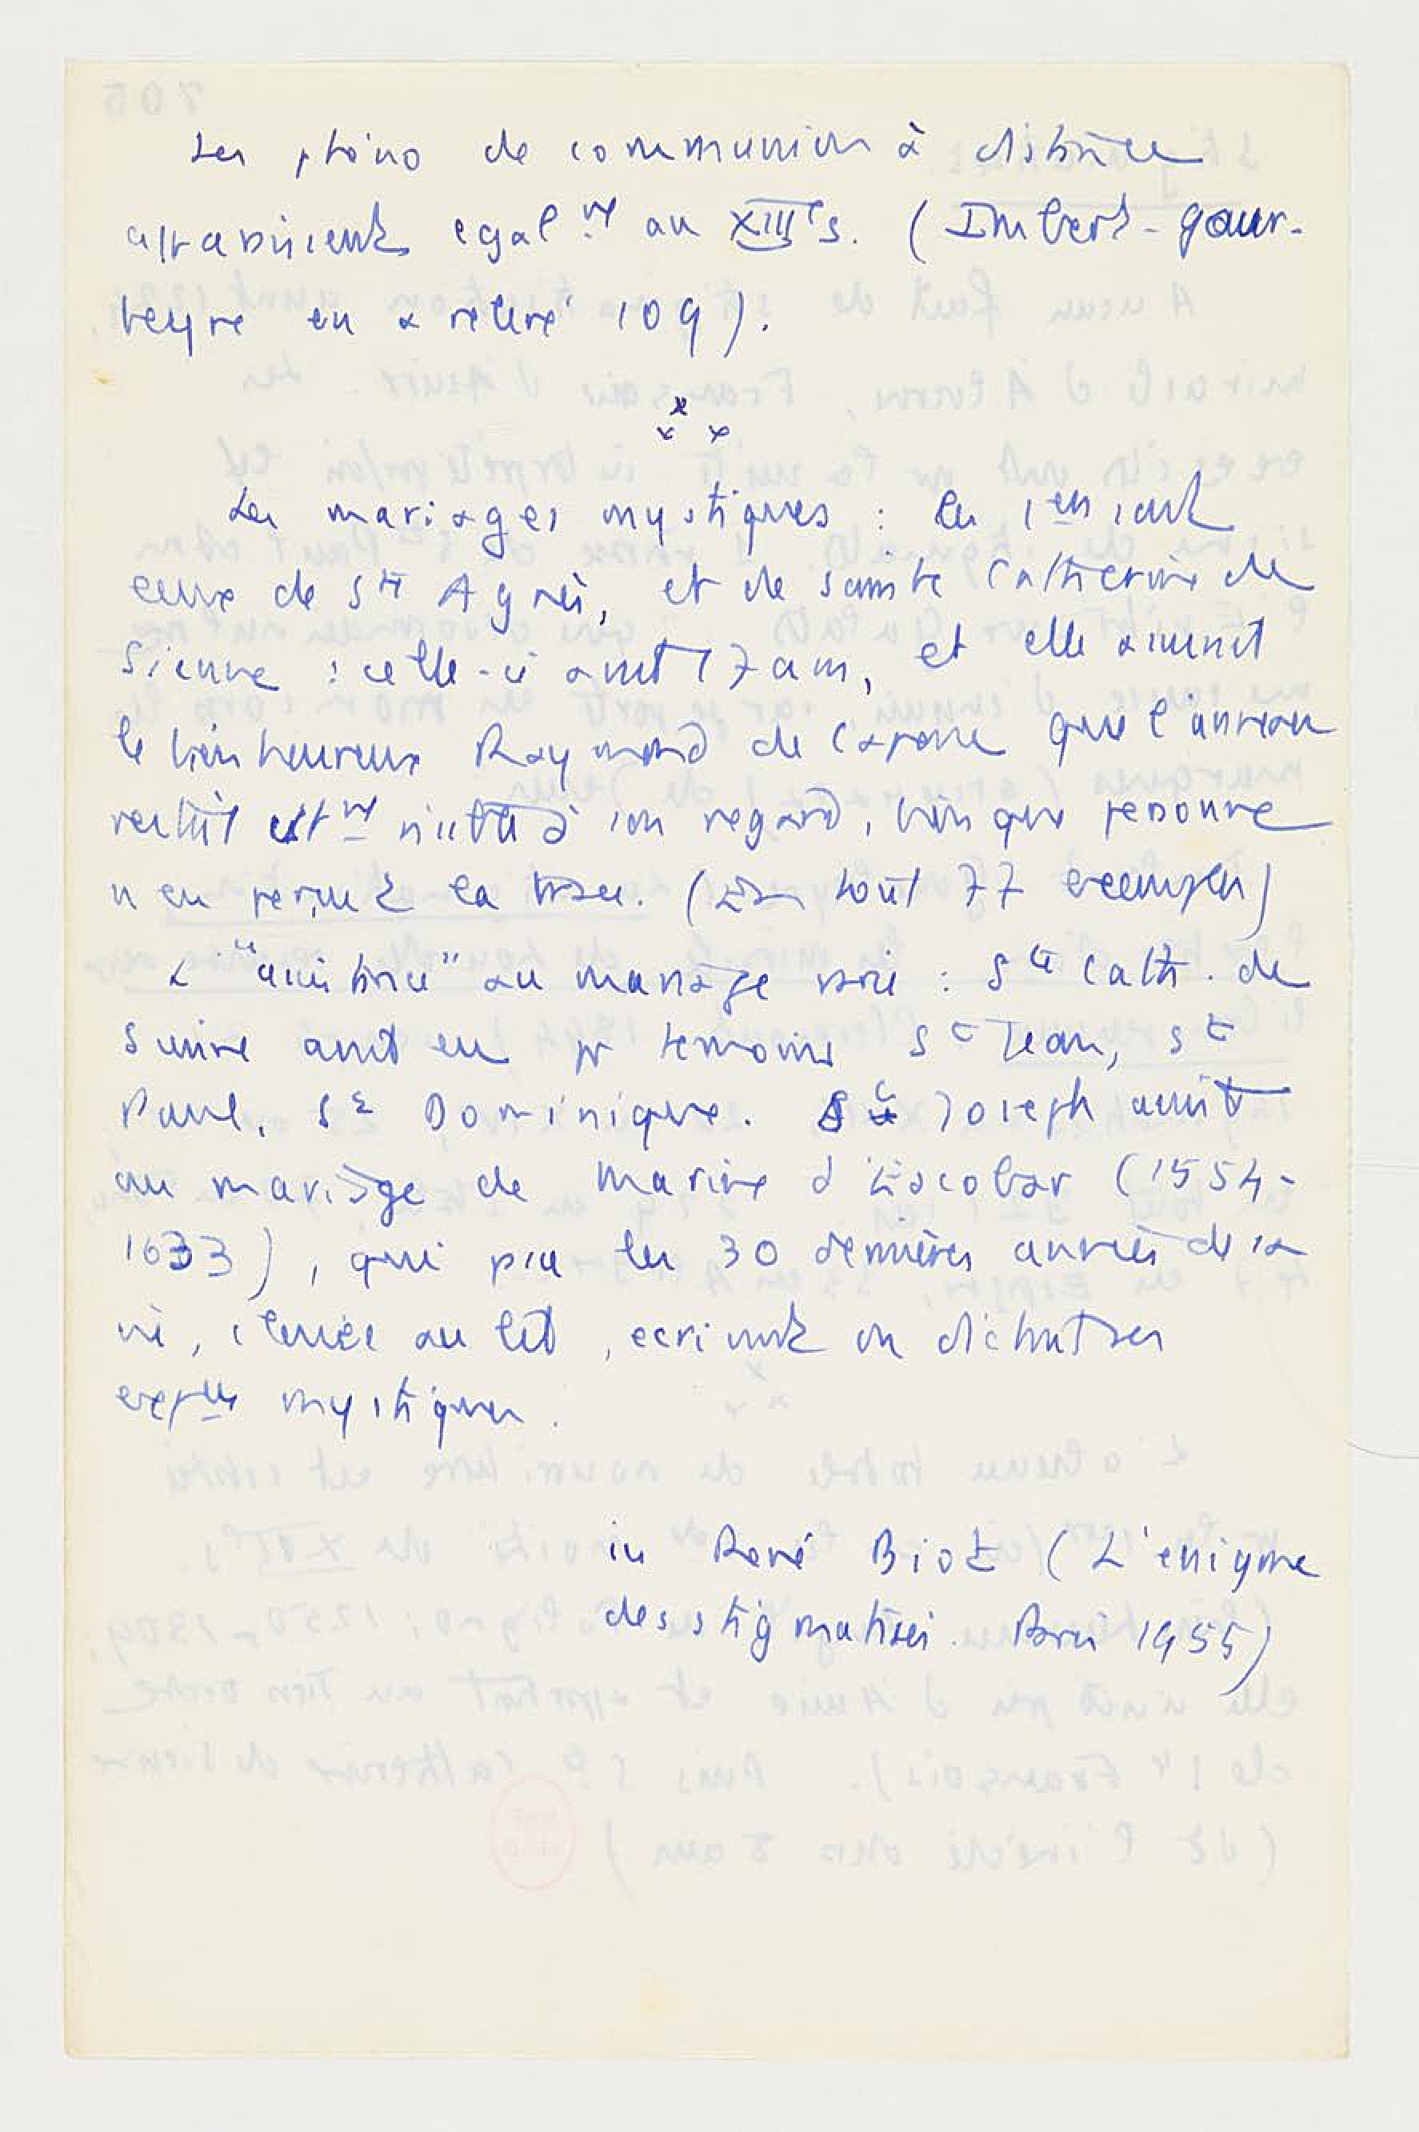 Les phéno de communion à distance
apparaissent egal.nt au XIIIe s. (Imbert-Gour-
beyre en a relevé 109).
x
x x
Les mariages mystiques : les 1ers sont
ceux de Ste Agnès, et de sainte Catherine de
Sienne : celle-ci avait 17 ans, et elle
le bienheureux Raymond de Capoue que l'anneau
restait à son regard, bien que personne
n'en perçut la trace. (En tout 77 exemples)
L'"assistance" au mariage varie : Ste Cath. de
Sienne avait eu pr temoins St Jean, St
Paul, St Dominique. St Joseph assista
au mariage de Marine d'Escobar (1554-
1633), qui passa les 30 dernières années de sa
vie, clouée au lit, ecrivant ou dictant ses
expces mystiques.
in René Biot (L'enigme
des stigmatisés. Paris 1955)